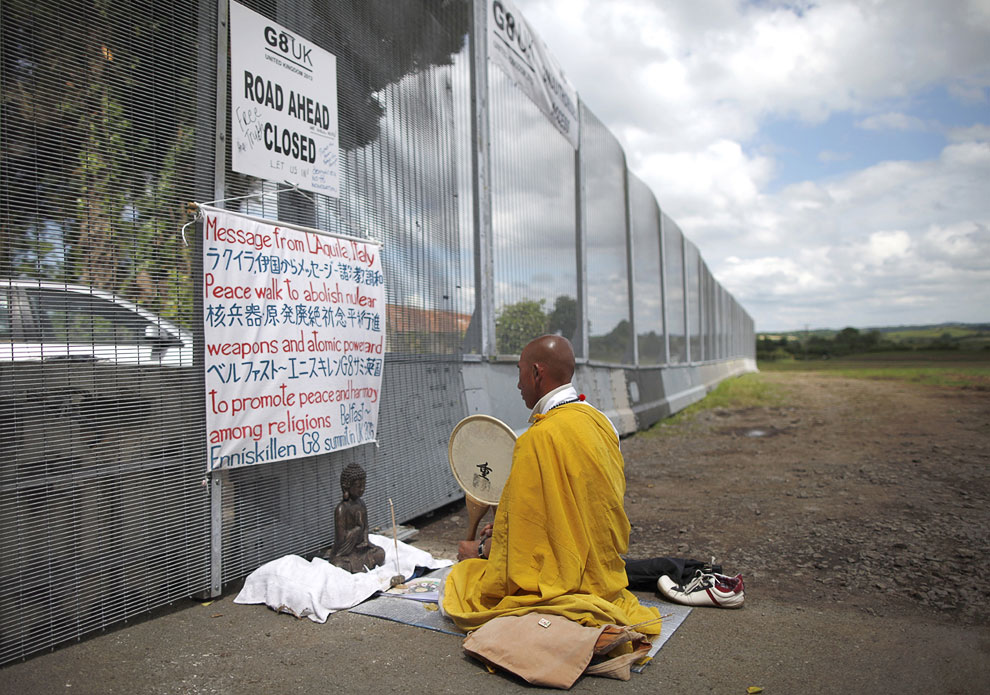 G8UK
UNITED KINGDOM 2013
ROAD AHEAD
CLOSED
Free
LET US IN
Message from L'Aquila, Italy
ラクイラ,伊国からメッセージ
Peace walk to abolish nulear
核兵器原発廃絶祈念平和行進
weapons and alomic powerard
ベルファスト〜エニスキレンG8サミ
to promote peace and harmony
among religions Belfast~
Enniskillen G8 summit in UK
G8UK